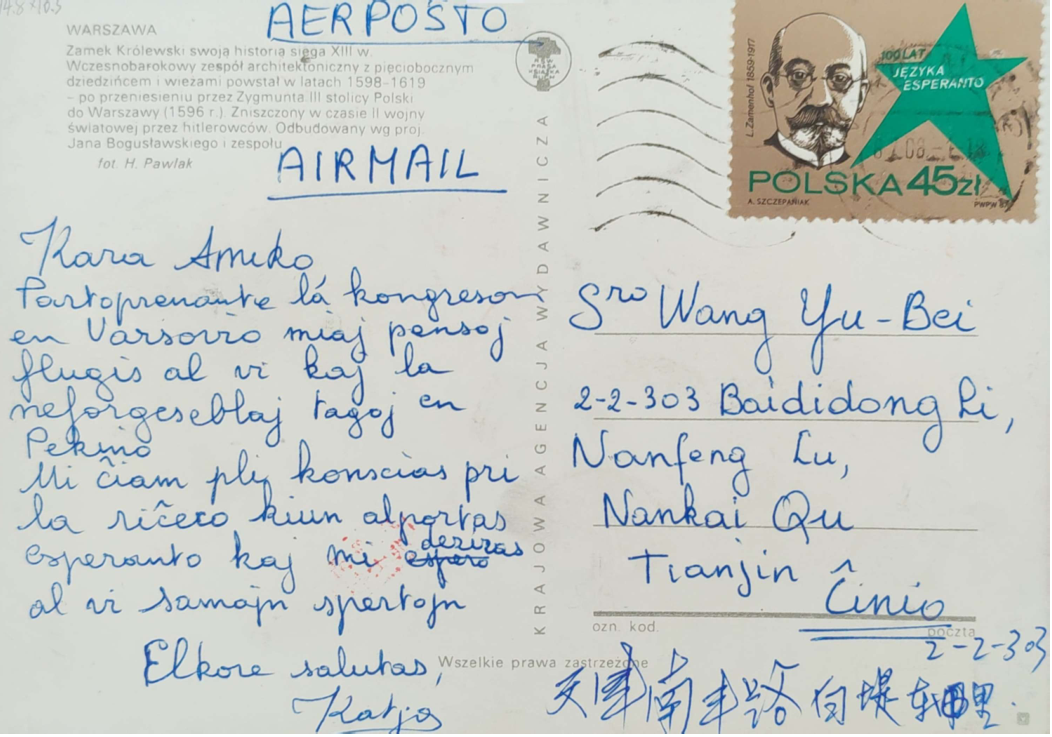 14.8 × 10.3
AERPOŜTO
WARSZAWA
Zamek Królewski swoją historią sięga XIII w.
Wczesnobarokowy zespół architektoniczny z pięciobocznym
dziedzińcem i wieżami powstał w latach 1598-1619
– po przeniesieniu przez Zygmunta III stolicy Polski
do Warszawy (1596 r.). Zniszczony w czasie II wojny
światowej przez hitlerowców. Odbudowany wg proj.
Jana Bogusławskiego i zespołu
fot. H. Pawlak
AIRMAIL
Kara Amiko
Partoprenante la kongreson
en Varsovio miaj pensoj
flugis al vi kaj la
neforgeseblaj tagoj en
Pekino
Mi ĉiam pli konscias pri
la riĉeco kiun alportas
esperanto kaj mi espero deziras
al vi samajn spertojn
Elkore salutas,
Katja
KRAJOWA AGENCJA WYDAWNICZA
RSW
PRASA
KSIĄŻKA
RUCH
L. Zamenhof 1859-1917
100 LAT
JĘZYKA
ESPERANTO
POLSKA 45zł
A. SZCZEPANIAK
PWPW 87
Sro Wang Yu-Bei
2-2-303 Baididong Li,
Nanfeng Lu,
Nankai Qu
Tianjin
Ĉinio
ozn. kod.
poczta
Wszelkie prawa zastrzeżone
2-2-303
天津南丰路白堤东里.